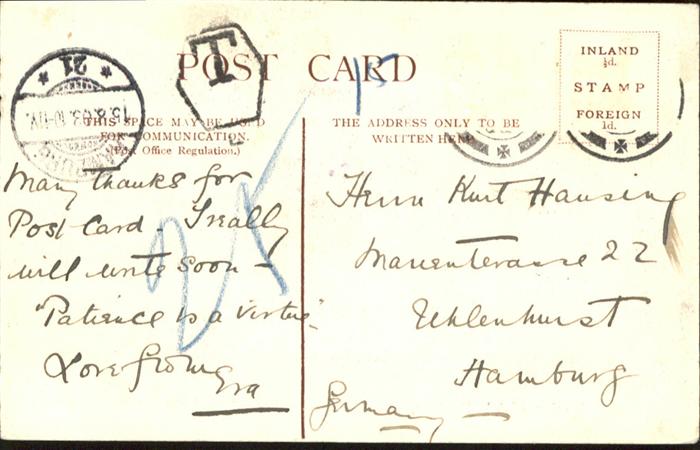 POST CARD
T
15
INLAND
½d.
STAMP
FOREIGN
1d.
THIS SPACE MAY BE USED
FOR COMMUNICATION.
(Post Office Regulation.)
THE ADDRESS ONLY TO BE
WRITTEN HERE
* 21 *
HAMBURG
25
Many thanks for
Post Card - I really
will write soon -
"Patience is a virtue".
Love from
Herrn Kurt Hansing
22
Uhlenhurst
Hamburg
Germany